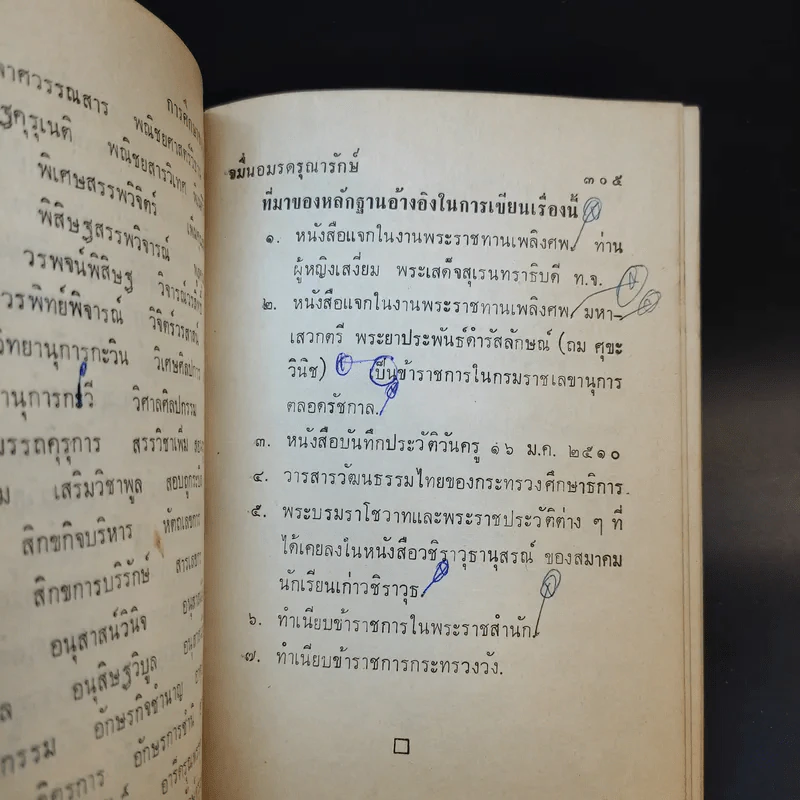 วรรณสาร
พณิชยสารวิเทศ
พิเศษสรรพวิจิตร์
พิสิษฐสรรพวิจารณ์
วรพจน์พิสิษฐ
วรพิทย์พิจารณ์ วิจิตร์วรสาสน์
วิทยานุการกะวิน วิเศษศิลปการ
วิศาลศิลปกรรม
สรรวิชาเพิ่ม
เสริมวิชาพูล
สิกขกิจบริหาร หัตถเลขการ
สิกขการบริรักษ์
อนุสาสน์วินิจ
อนุสิษฐวิบูล
อักษรกิจชำนาญ
อักษรการชำนิ
จมื่นอมรดรุณารักษ์
๓๐๕
ที่มาของหลักฐานอ้างอิงในการเขียนเรื่องนี้
๑. หนังสือแจกในงานพระราชทานเพลิงศพ ท่าน
ผู้หญิงเสงี่ยม พระเสด็จสุเรนทราธิบดี ท.จ.
๒. หนังสือแจกในงานพระราชทานเพลิงศพ มหา–
เสวกตรี พระยาประพันธ์ดำรัสลักษณ์ (ถม ศุขะ
วินิช) เป็นข้าราชการในกรมราชเลขานุการ
ตลอดรัชกาล.
๓. หนังสือบันทึกประวัติวันครู ๑๖ ม.ค. ๒๕๑๐
๔. วารสารวัฒนธรรมไทยของกระทรวงศึกษาธิการ
๕. พระบรมราโชวาทและพระราชประวัติต่าง ๆ ที่
ได้เคยลงในหนังสือวชิราวุธานุสรณ์ ของสมาคม
นักเรียนเก่าวชิราวุธ
๖. ทำเนียบข้าราชการในพระราชสำนัก
๗. ทำเนียบข้าราชการกระทรวงวัง.